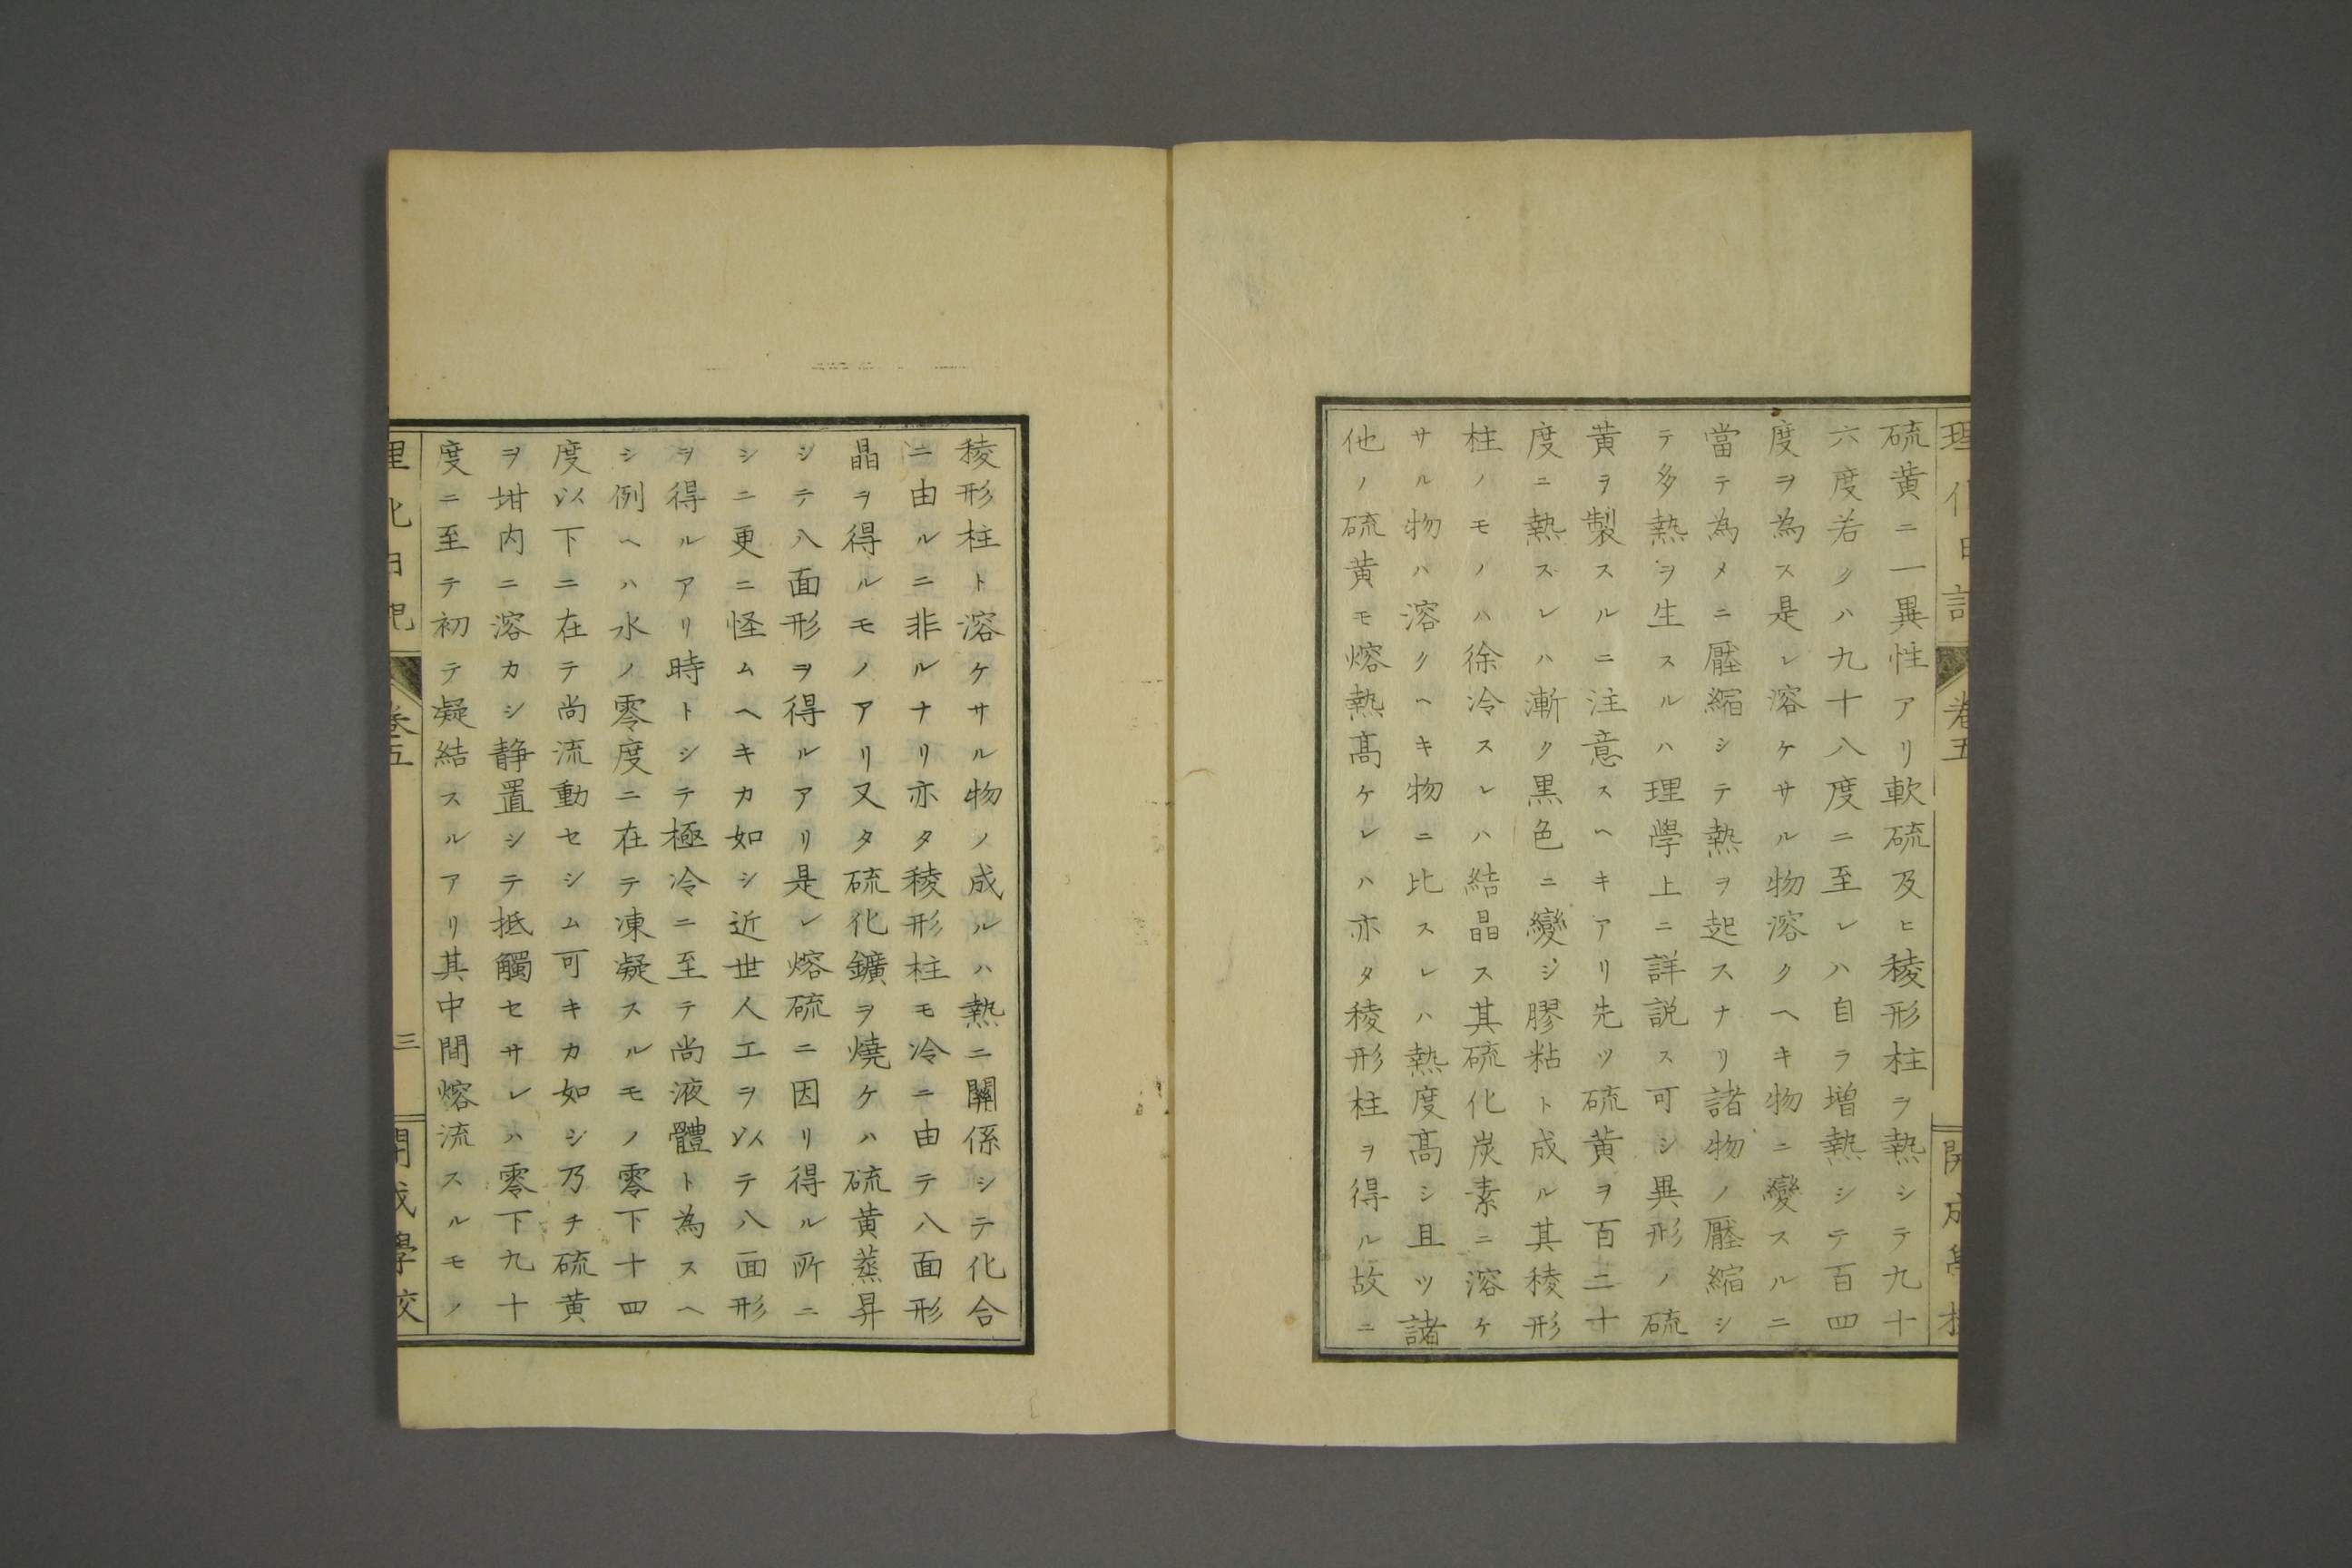 理化日記 卷五 開成學校
硫黄ニ一異性アリ軟硫及ヒ稜形柱ヲ熱シテ九十
六度若クハ九十八度ニ至レハ自ラ増熱シテ百四
度ヲ為ス是レ溶ケサル物溶クヘキ物ニ變スルニ
當テ為メニ壓縮シテ熱ヲ起スナリ諸物ノ壓縮シ
テ多熱ヲ生スルハ理學上ニ詳説ス可シ異形ノ硫
黄ヲ製スルニ注意スヘキアリ先ツ硫黄ヲ百二十
度ニ熱スレハ漸ク黒色ニ變シ膠粘ト成ル其稜形
柱ノモノハ徐冷スレハ結晶ス其硫化炭素ニ溶ケ
サル物ハ溶クヘキ物ニ比スレハ熱度髙シ且ツ諸
他ノ硫黄モ熔熱髙ケレハ亦タ稜形柱ヲ得ル故ニ
稜形柱ト溶ケサル物ノ成ルハ熱ニ關係シテ化合
ニ由ルニ非ルナリ亦タ稜形柱モ冷ニ由テ八面形
晶ヲ得ルモノアリ又タ硫化鑛ヲ燒ケハ硫黄蒸昇
シテ八面形ヲ得ルアリ是レ熔硫ニ因リ得ル所ニ
シニ更ニ怪ムヘキカ如シ近世人工ヲ以テ八面形
ヲ得ルアリ時トシテ極冷ニ至テ尚液體ト為スヘ
シ例ヘハ水ノ零度ニ在テ凍凝スルモノ零下十四
度以下ニ在テ尚流動セシム可キカ如シ乃チ硫黄
ヲ坩内ニ溶カシ静置シテ抵觸セサレハ零下九十
度ニ至テ初テ凝結スルアリ其中間熔流スルモノ
理化日記 卷五 三 開成學校